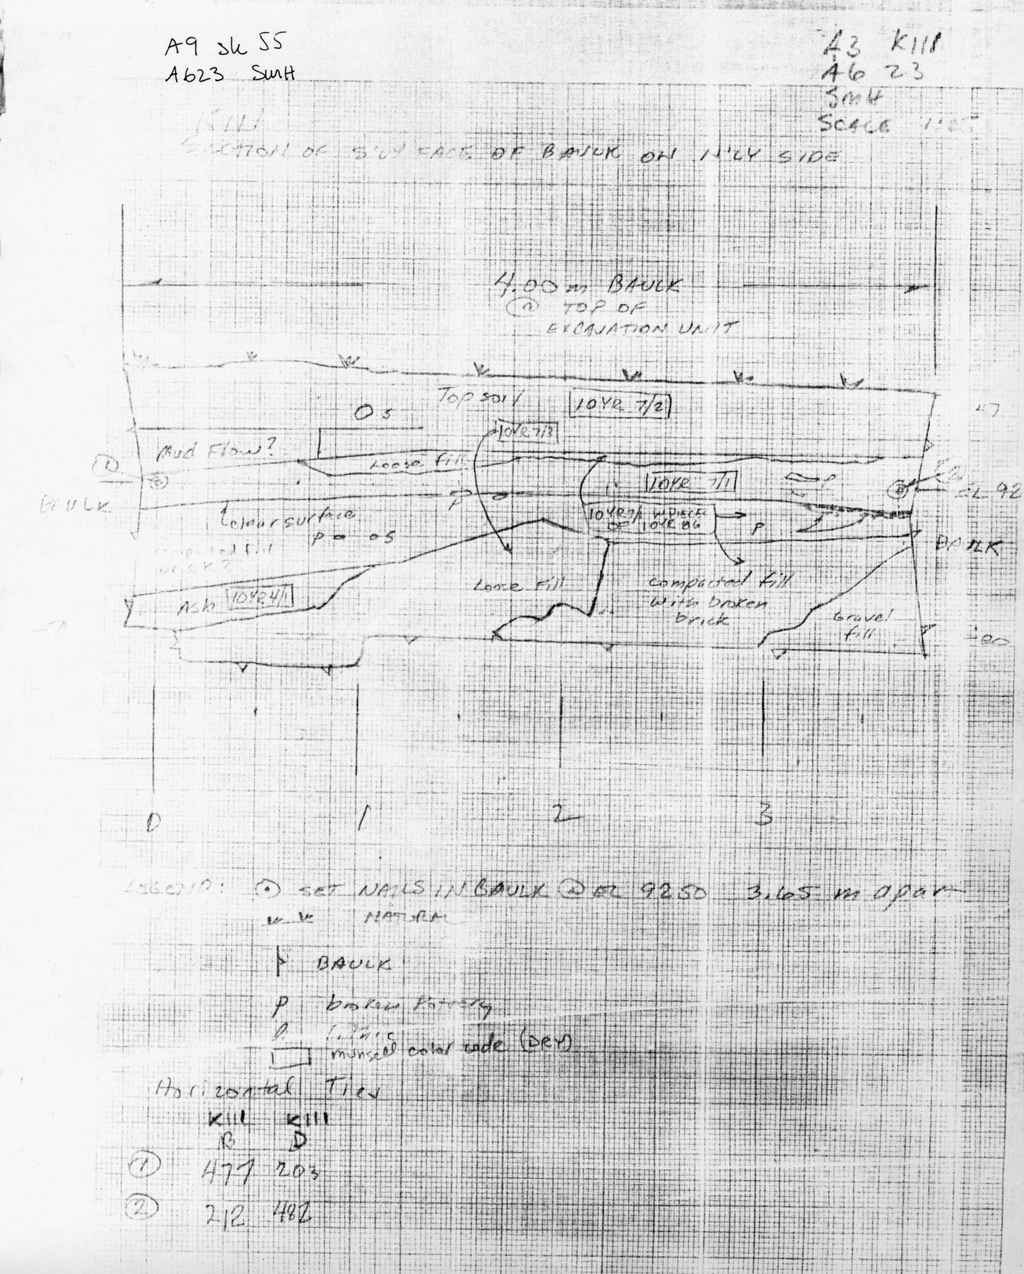 A9 sk 55
A623 SMH
A3 K111
A6 23
SMH
SCALE 1:25
K111
SECTION OF S'LY FACE OF BAULK ON N'LY SIDE
4.00 m BAULK
@ TOP OF
EXCAVATION UNIT
Top soil
10YR 7/2
O s
10YR 7/3
47
Mud Flow?
Loose fill
1
10YR 7/1
P
2
EL 92
BAULK
P
Colour surface
10YR 7/1 W PIECE
OF 10YR 8/6
P
P
s
BAULK
compacted fill
brick?
Ash
10YR 4/1
Loose Fill
compacted fill
with broken
brick
Gravel
fill
80
0 1 2 3
LEGEND: SET NAILS IN BAULK @ EL 9250 3.65 m apart
NATURAL
BAULK
P broken Pottery
munsell color code (DRY)
Horizontal Ties
K111 K111
B D
1 477 203
2 212 482